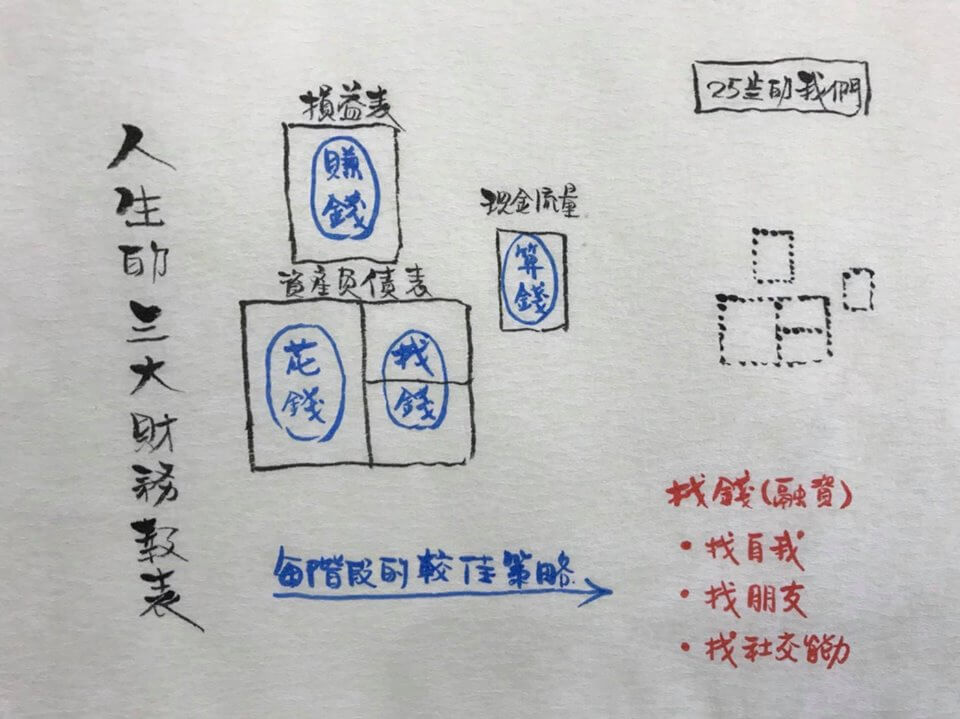 人生的三大財務報表
損益表
賺錢
現金流量
算錢
資產負債表
花錢
找錢
每階段的較佳策略
25岁的我們
找錢(融資)
• 找自我
• 找朋友
• 找社交能力